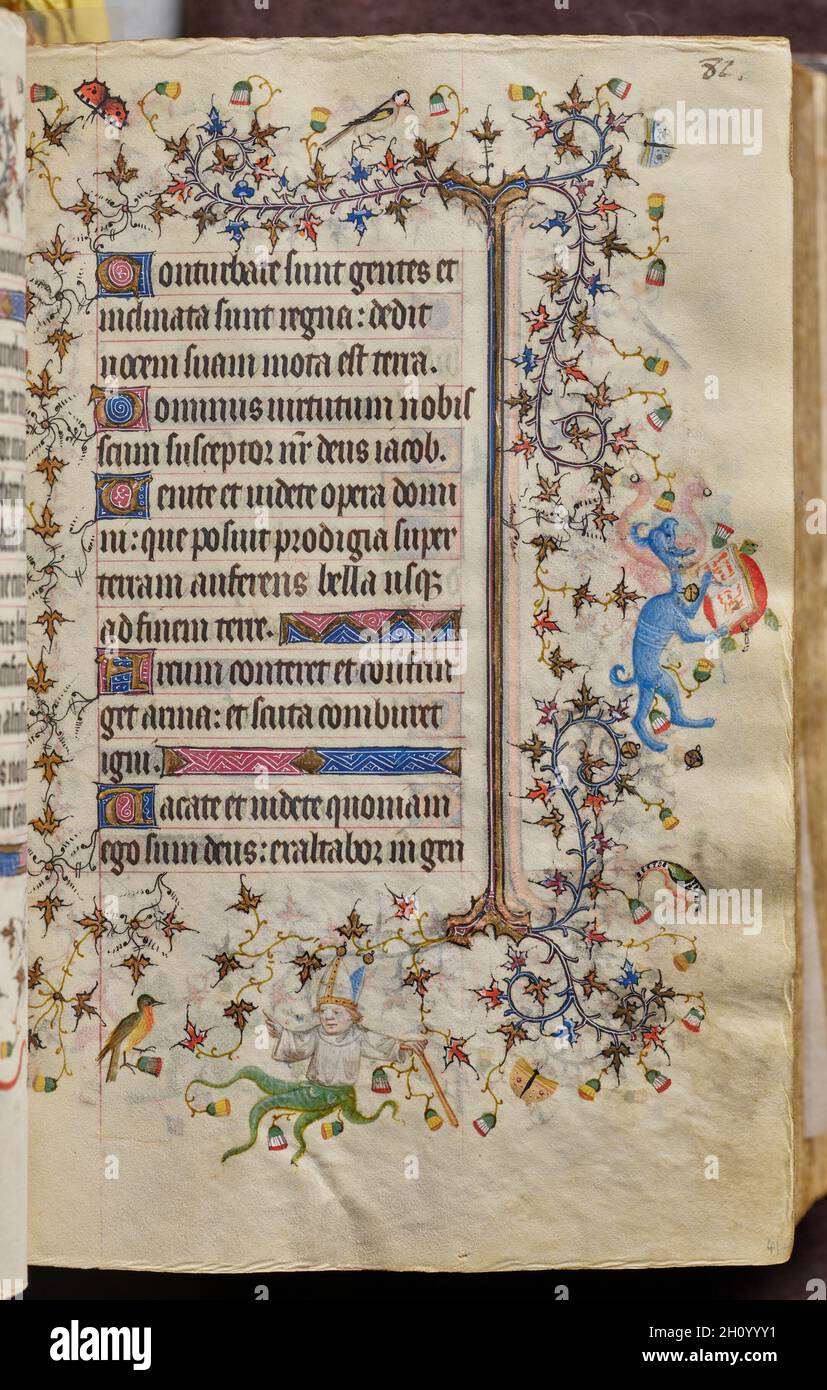 82.
Conturbate sunt gentes et
inclinata sunt regna: dedit
uocem suam mota est terra.
Dominus uirtutum nobis
cum susceptor nr deus iacob.
Uenite et uidete opera domi
ni: que posuit prodigia super
terram auferens bella usq
ad finem terre.
Arcum conteret et confrin
get arma: et scuta comburet
igni.
Uacate et uidete quoniam
ego sum deus: exaltabor in gen
41
alamy
Image ID: 2H0YYY1
www.alamy.com